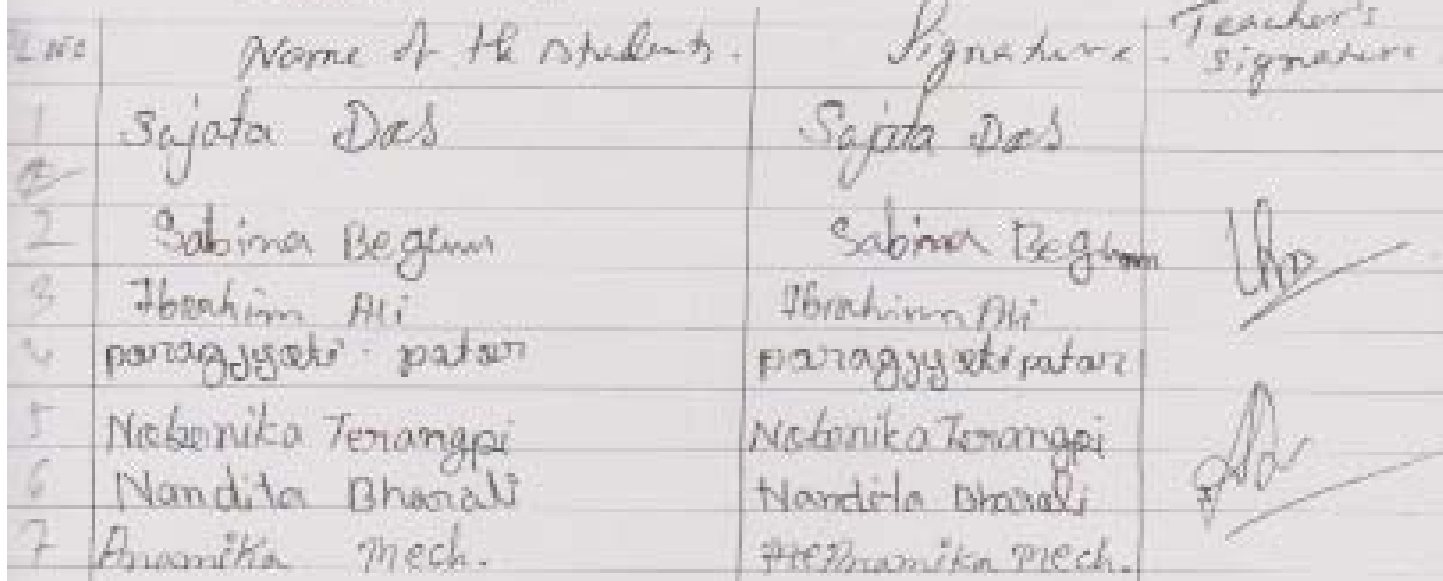 SL NO Name of the students. Signature. Teacher's Signature.
1 Sajata Das Sajata Das
2 Sabina Begum Sabina Begum
3 Ibrahim Ali Ibrahim Ali
4 paragjyoti patar paragjyoti patar
5 Nabonika Terangpi Nabonika Terangpi
6 Nandita Bharali Nandita Bharali
7 Anamika Mech. Anamika Mech.